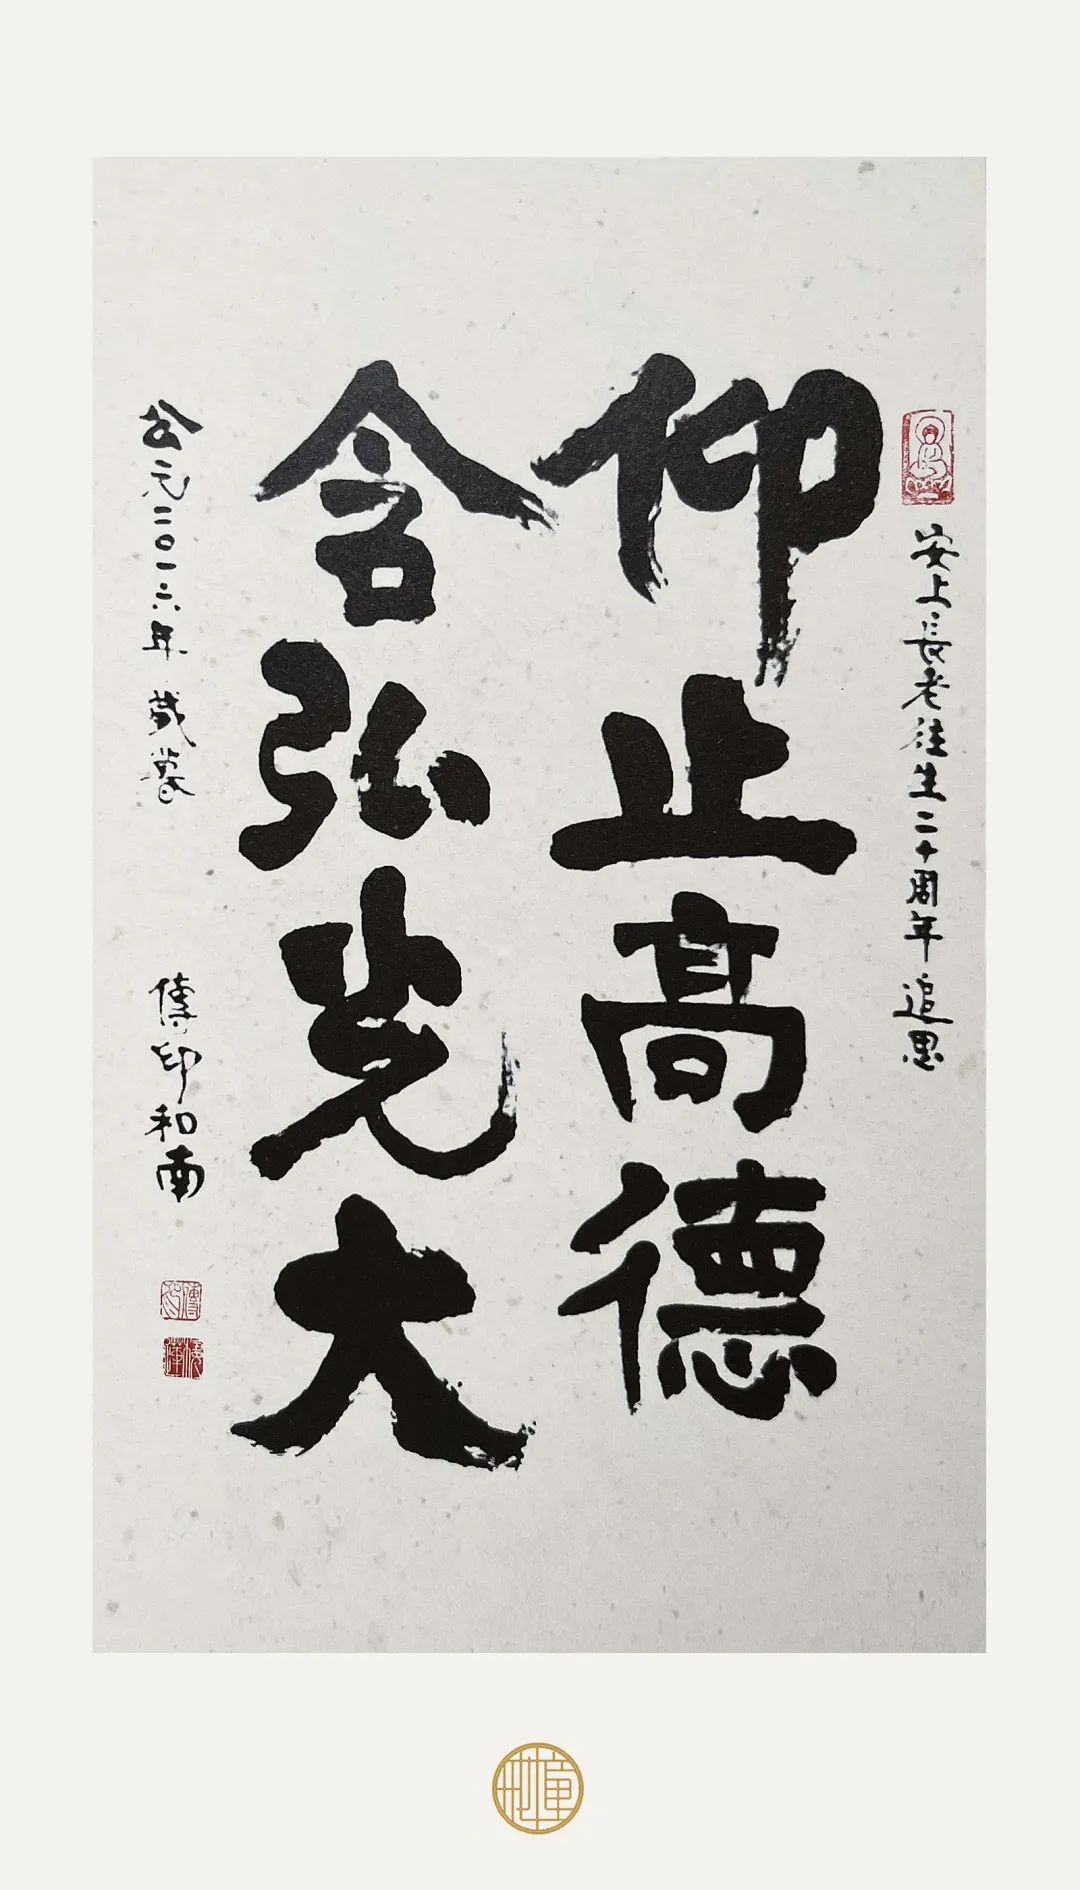 安上長老往生二十周年追思
仰止高德
含弘光大
公元二〇一六年歲暮
傳印和南
傳印